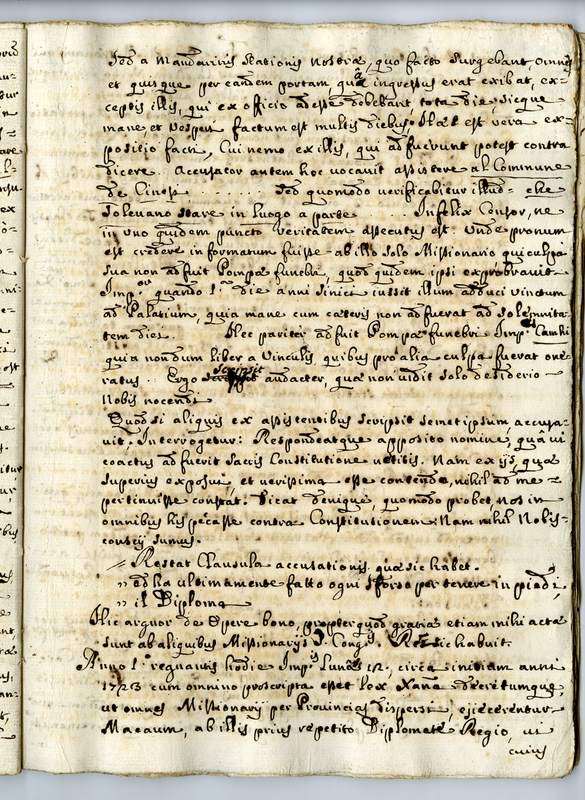 sed a Mandarinis stationis nostræ, quo facto surgebant omnes
et quisque per eandem portam, quâ ingressus erat exibat, ex-
ceptis illis, qui ex officio adesse debebant tota die, sicque
mane, et vesperi factum est multis diebus. Hæc est vera ex-
positio facti, Cui nemo ex illis, qui adfuerunt potest contra
dicere. Accusator autem hoc vocavit assistere al Commune
de Cinesi . . . . . . . sed quomodo verificabitur illud = che
solevano stare in luogo a parte . . . Infelix Censor, ne
in uno quidem puncto veritatem assecutus est. Unde pronum
est credere informatum fuisse ab illo solo Missionario qui culpa
sua non adfuit Pompæ funebri, quod quidem ipsi exprobravit
Imp.or quando 1.a die anni Sinici iussit illum adduci vinctum
ad Palatium, quia mane cum cæteris non adfuerat ad solemnita-
tem diei. Nec pariter adfuit Pompæ funebri Imp.ris Camhi
quia nondum liber a vinculis quibus pro alia culpa fuerat one-
ratus . . Ergo scripsit audacter, quæ non vidit solo desiderio
nobis nocendi
Quod si aliquis ex assistentibus scripsit semetipsum accusa-
vit; Interrogetur: Respondeatque apposito nomine, quâ vi
coactus adfuerit sacris Constitutione vetitis. Nam ex ijs, quæ
superius exposui, et verissima esse contendo, nihil ad me
pertinuisse constat. Dicat denique, quomodo probet nos in
omnibus his peccasse contra Constitutionem. Nam nihil Nobis
conscij sumus.
= Restat Clausula accusationis quæ sic habet.
" ed ha ultimamente fatto ogni sforzo per tenere in piedi,
" il Diploma
Hic arguor de Opere bono, propter quod gratiæ etiam mihi actæ
sunt ab aliquibus Missionarijs S. Cong.nis Res sic habuit.
Anno 1.o regnantis hodie Imp.ris Lunâ 12, circa initium anni
1723 cum omnino proscripta esset lex Xana decretumque,
ut omnes Missionarij per Provincias dispersi, ejicerentur
Macaum, ab illis prius repetito Diplomate Regio, vi
cuius